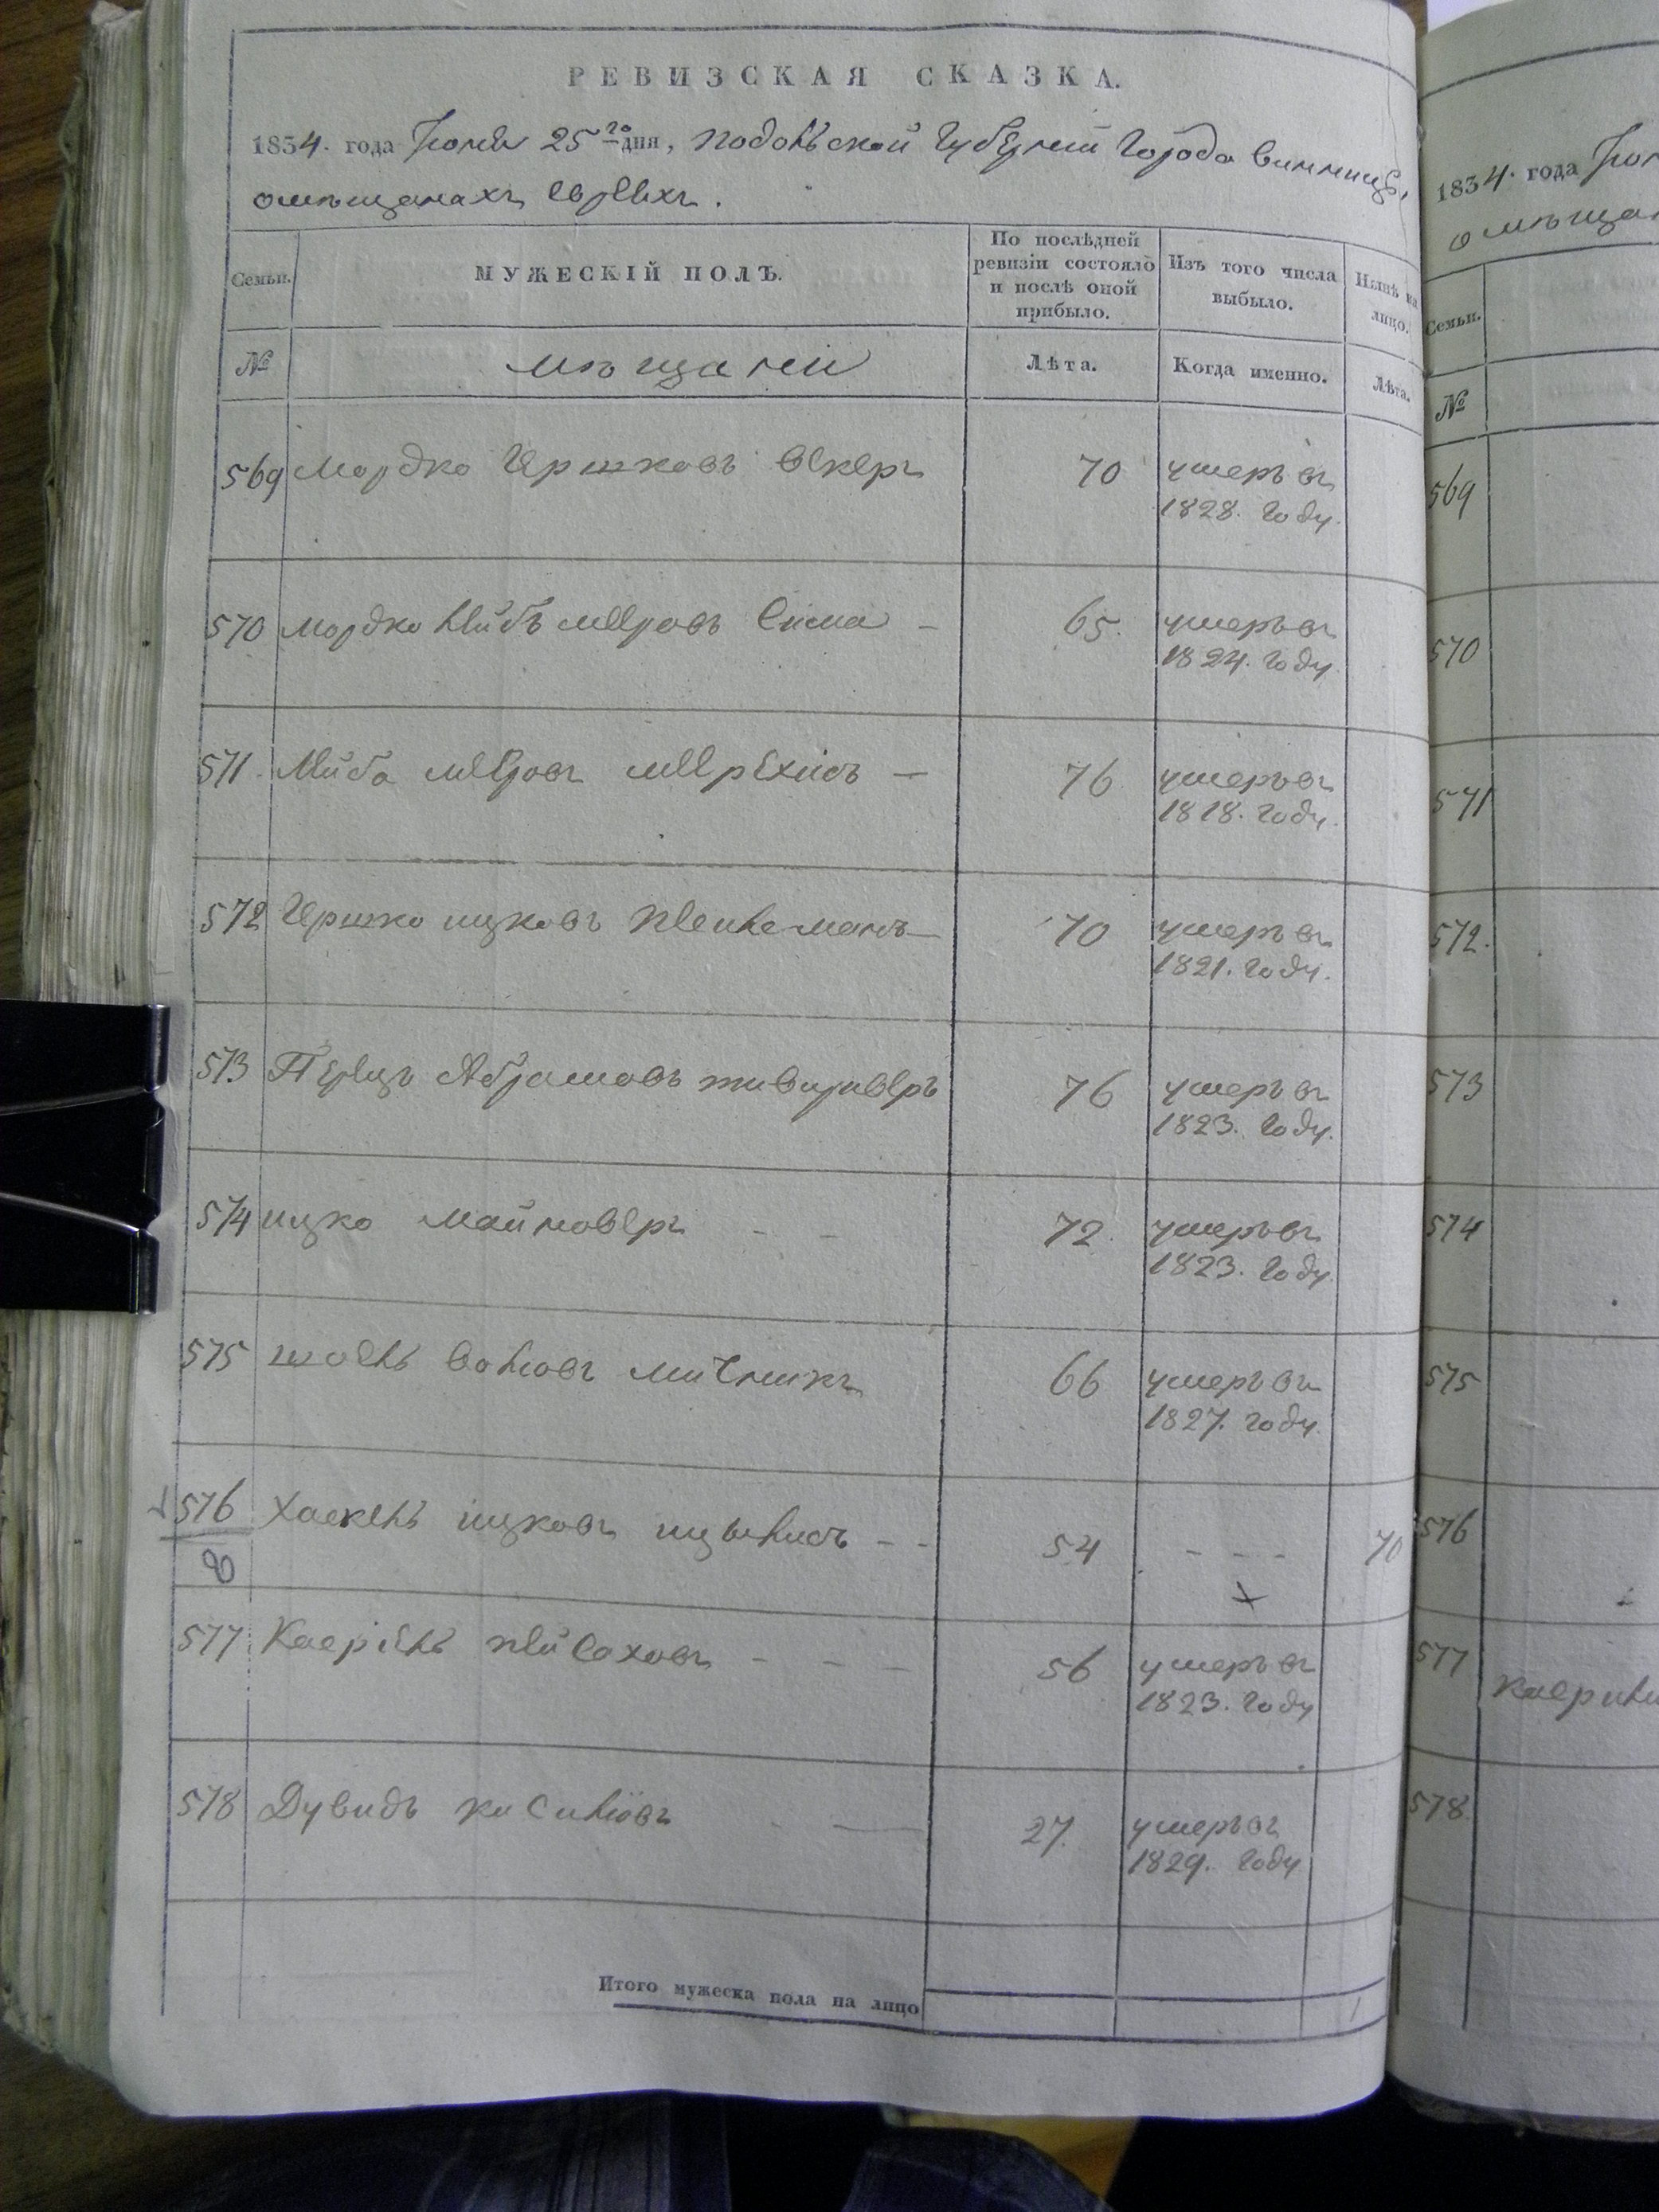 РЕВИЗСКАЯ СКАЗКА.
1834. года Июня 25го дня, подольской Губернiи Города винницы,
о мѣщанахъ евреяхъ.
Семьи.
МУЖЕСКІЙ ПОЛЪ.
По послѣдней
ревизіи состояло
и послѣ оной
прибыло.
Изъ того числа
выбыло.
Нынѣ на
лицо.
№
мѣщани
Лѣта.
Когда именно.
Лѣта.
569 Мордко Гершковъ векеръ 70 умеръ въ
1828. году.
570 мордко лейбъ мееровъ Сима – 65. умеръ въ
1824. году.
571. Лейба мееровъ – 76 умеръ въ
1818. году.
572 Гершко ицковъ – 70 умеръ въ
1821. году.
573 Перецъ Абрамовъ 76 умеръ въ
1823. году.
574 ицко маймоверъ - - 72. умеръ въ
1823. году.
575 шоель волковъ 66 умеръ въ
1827. году.
576 Хаскель ицковъ - - 54 - - - 70
8 +
577 Касріель пейсаховъ - - – 56 умеръ въ
1823. году
578 Дувидъ киСиліовъ - — 27. умеръ въ
1829. году
Итого мужеска пола на лицо 1
1834. года
о мѣща
Семьи.
№
569
570
571
572.
573
574
575
576
577 касрили
578.